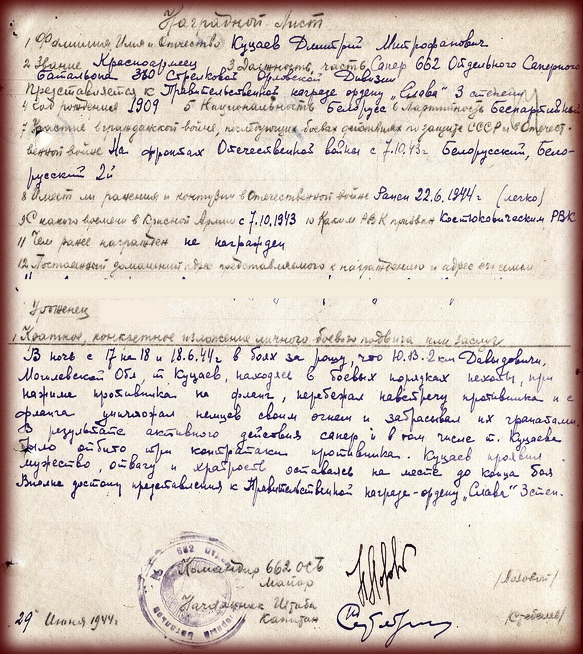 Наградной Лист
1 Фамилия, Имя и Отчество Куцаев Дмитрий Митрофанович
2 Звание Красноармеец 3 Должность, часть Сапер 662 Отдельного Саперного
Батальона 380 Стрелковой Орловской Дивизии
Представляется к Правительственной награде ордену „Слава" 3 степени
4 Год рождения 1909 5 Национальность Белорус 6 Партийность Беспартийный
7 Участие в гражданской войне, последующих боевых действиях по защите СССР и в Отечест-
венной войне На фронтах Отечественной войны с 7.10.43г Белорусский, Бело-
русский 2й
8 Имеет ли ранения и контузии в Отечественной войне Ранен 22.6.1944г (легко)
9 С какого времени в Красной Армии с 7.10.1943 10 Каким РВК призван Костюковическим РВК
11 Чем ранее награжден не награжден
12 Постоянный домашний адрес представляемого к награждению и адрес его семьи
1 Краткое, конкретное изложение личного боевого подвига или заслуг
В ночь с 17 на 18 и 18.6.44г в боях за рощу, что Ю.В. 2 км Давыдовичи,
Могилевской Обл, т Куцаев, находясь в боевых порядках пехоты, при
нажиме противника на фланг, перебежал навстречу противника и с
фланга уничтожал немцев своим огнем и забрасывал их гранатами.
В результате активного действия сапер, и в том числе т. Куцаева
было отбито три контратаки противника. Куцаев проявил
мужество, отвагу и храбрость оставаясь на месте до конца боя
Вполне достоин представления к Правительственной награде-ордену „Слава" 3 степ.
Командир 662 ОСБ
Майор
/Лозовой/
Начальник Штаба
Капитан
/Стебелев/
29 Июня 1944г.